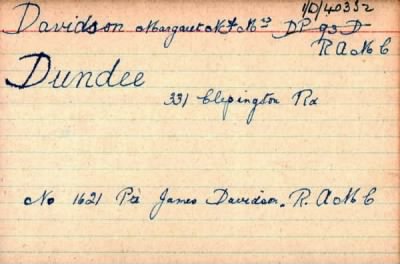 1/D/40352
Davidson Margaret Mrs DP 93 D
R A M C
Dundee
331 Clepington Rd
No 1621 Pte James Davidson. R. A M C